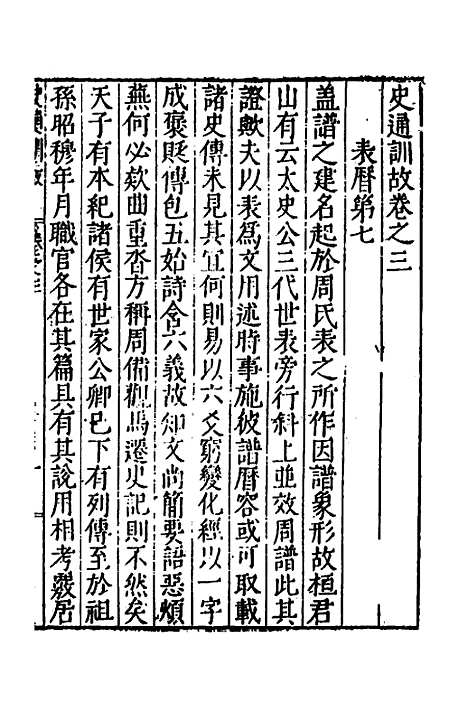 史通訓故卷之三
表曆第七
盖譜之建名起於周氏表之所作因譜象形故桓君
山有云太史公三代世表旁行斜上並效周譜此其
證歟夫以表爲文用述時事施彼譜曆容或可取載
諸史傳未見其宜何則易以六爻窮變化經以一字
成褒貶傳包五始詩含六義故知文尚簡要語惡煩
蕪何必欵曲重沓方稱周俻觀馬遷史記則不然矣
天子有本紀諸侯有世家公卿已下有列傳至於祖
孫昭穆年月職官各在其篇具有其說用相考覈居